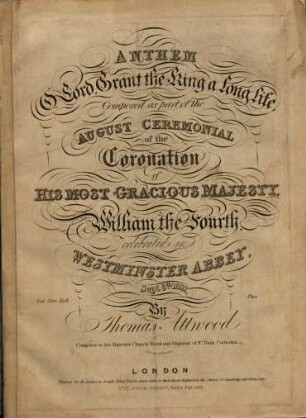 ANTHEM
O Lord Grant the King a Long Life
Composed as part of the
AUGUST CEREMONIAL
of the
Coronation
of
HIS MOST GRACIOUS MAJESTY,
William the Fourth
celebrated in
WESTMINSTER ABBEY,
Sept. 8th 1831,
By
Ent. Sta. Hall.
Thomas Attwood
Composer to his Majesty's Chapels Royal and Organist of St. Pauls Cathedral.
LONDON